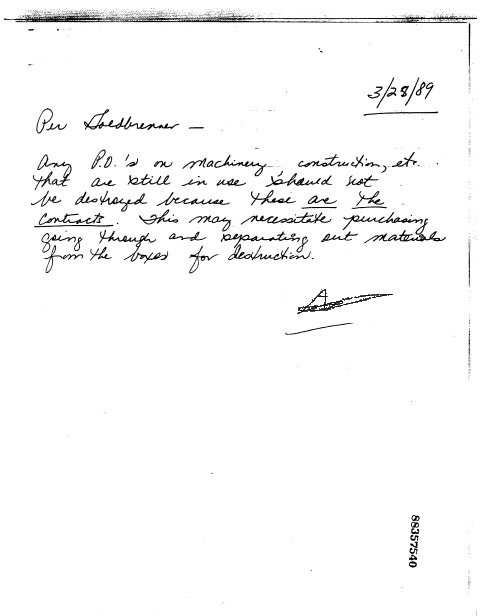 3/28/89
Per Goldbrenner —
Any P.O.'s on machinery construction, etc.
that are still in use should not
be destroyed because these are the
contracts. This may necessitate purchasing
going through and separating out materials
from the boxes for destruction.
88357540